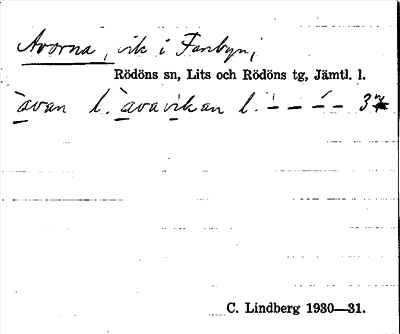 Avorna, vik i Fanbyn,
Rödöns sn, Lits och Rödöns tg, Jämtl. l.
àvan l. àvavikan l.
C. Lindberg 1930—31.